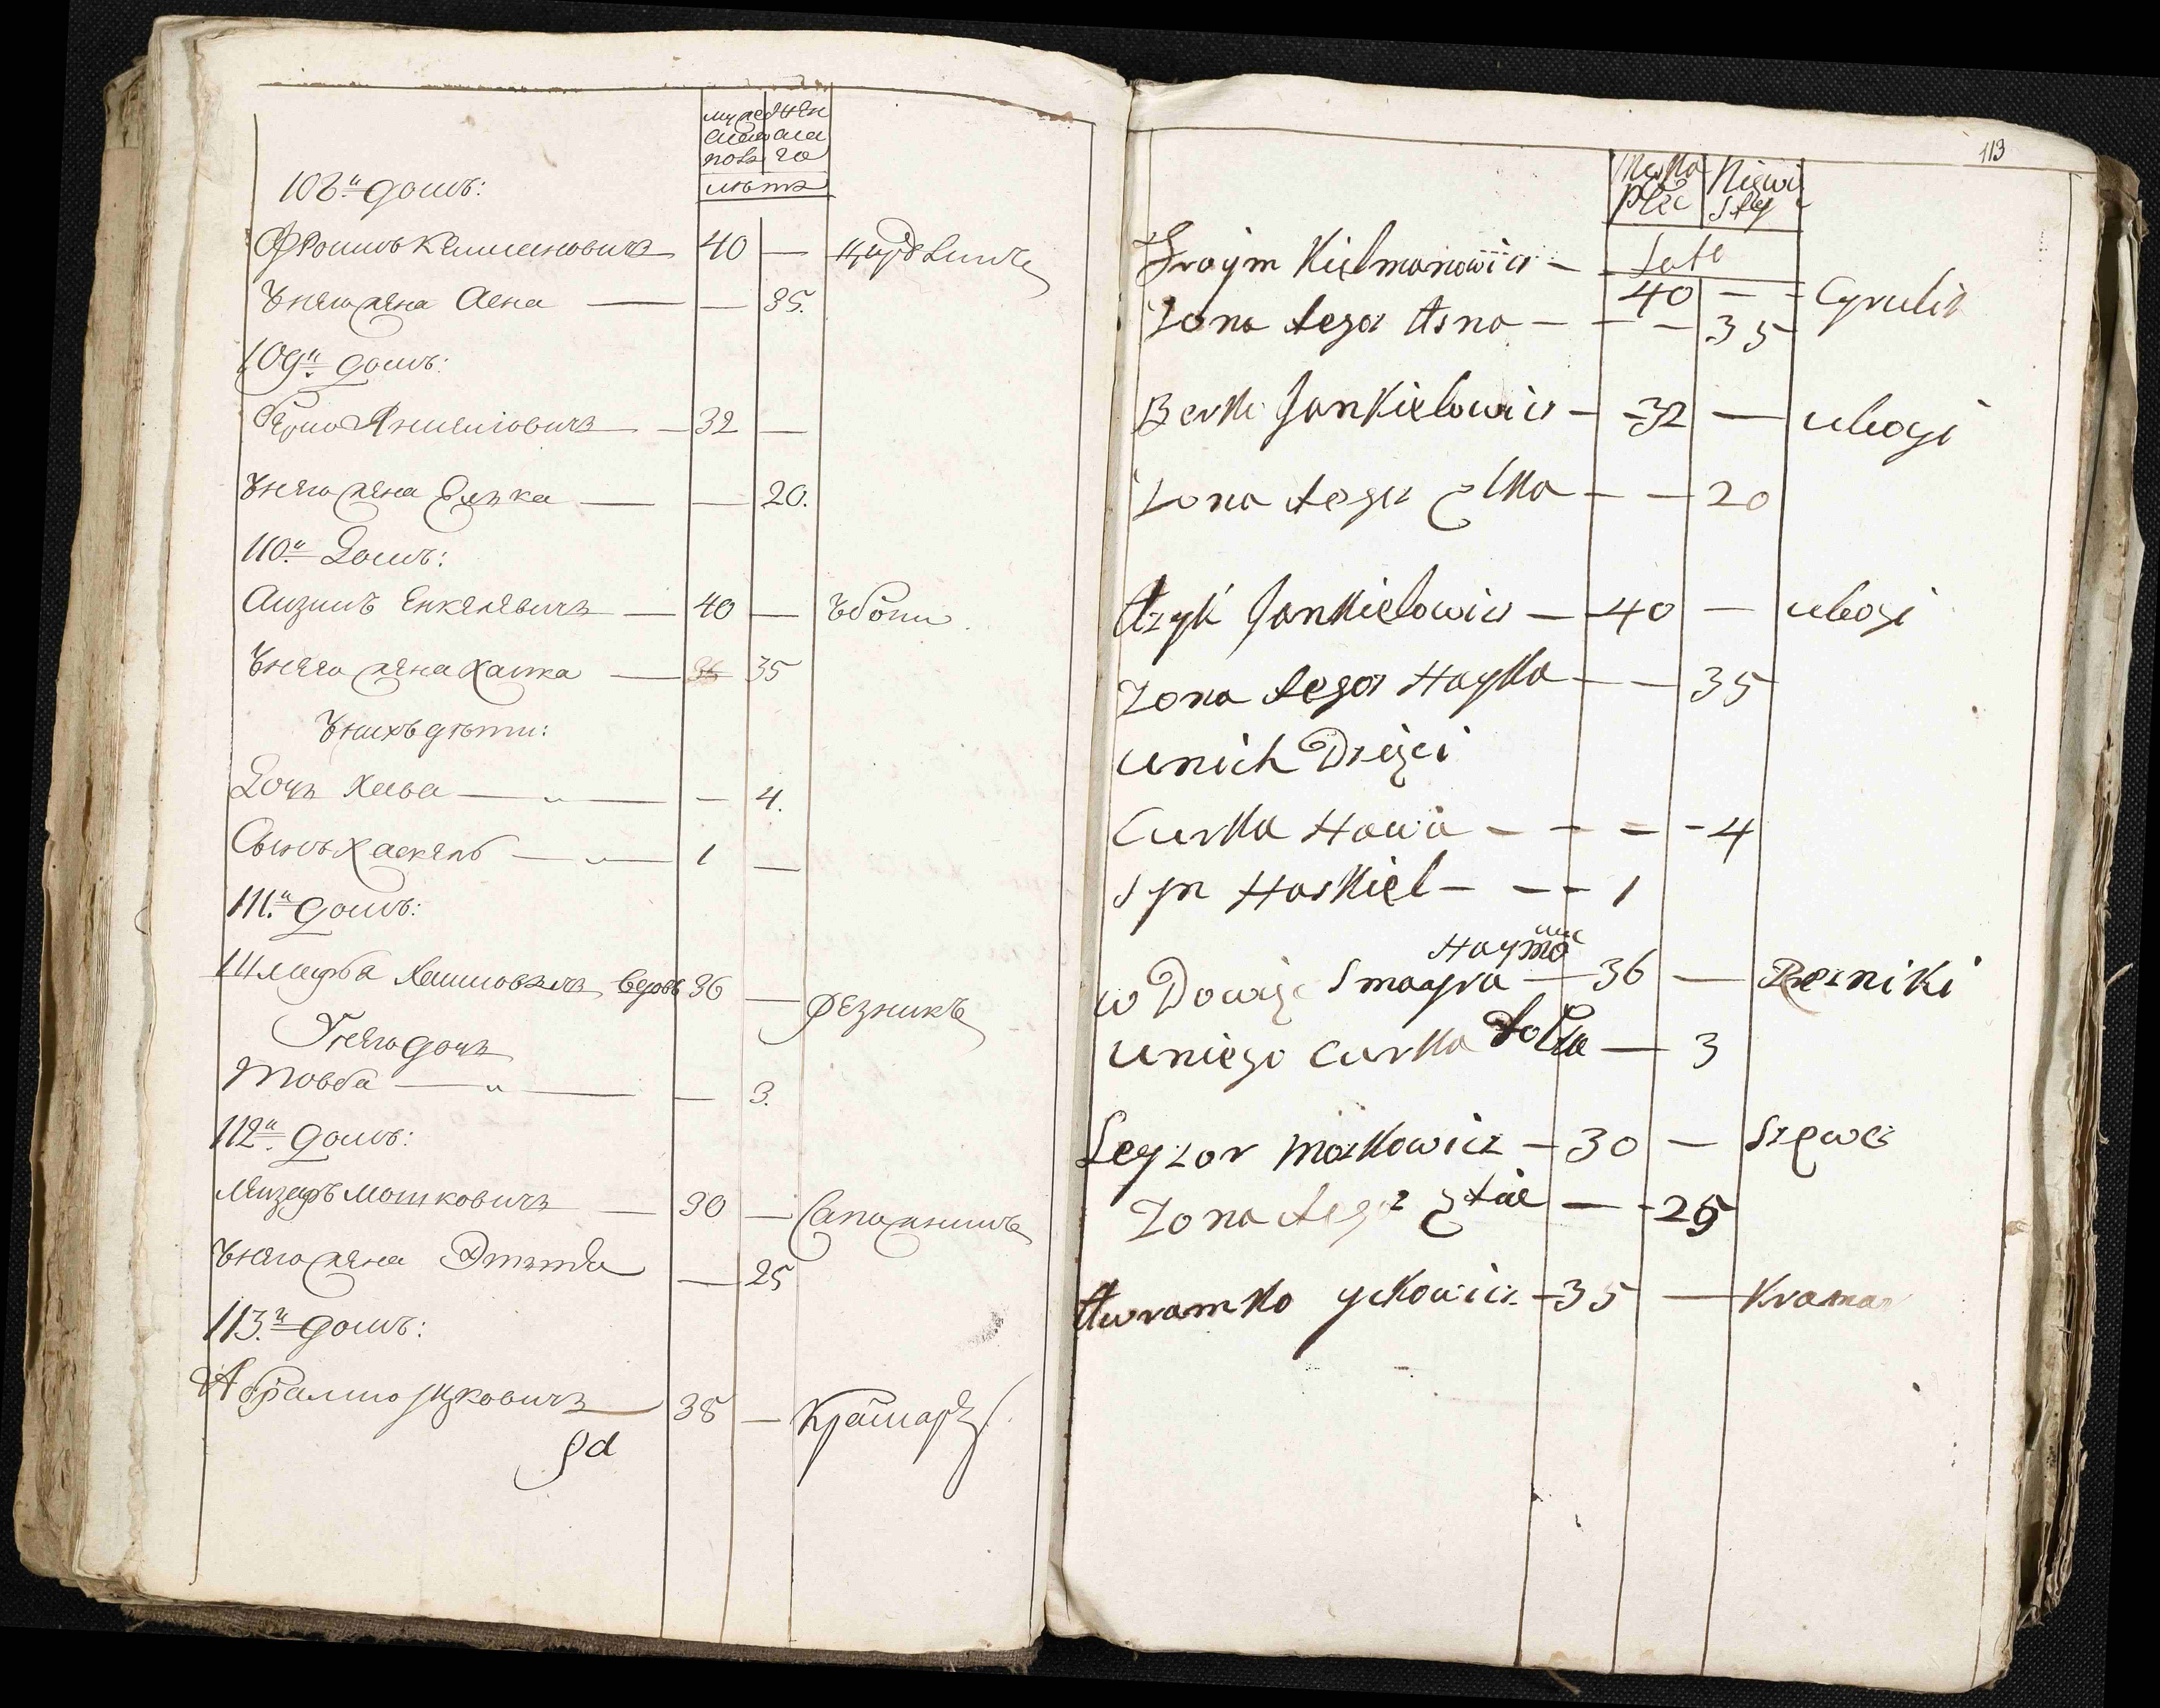 мужеска полу
женскаго
лѣтъ
108й домъ:
Фроимъ Келмановичъ — 40 — цырулик
Унего жена Асна — — 35.
109й домъ:
Берко Янкелiовичъ — 32 —
Унего жена Елька — — 20.
110й Домъ:
Аизикъ Енкелевичъ — 40 — Убоги
Унего жена Хаика — 35
Унихъ дѣти:
Дочь Хава — — 4.
Сынъ Хаскель — 1 —
111й домъ:
Шмаера Хаимовичъ, вдовъ 36 — Резникъ
Унего дочь
Товба — — 3.
112й домъ:
Леизеръ Мошковичъ — 30 — Сапожникъ
Унего жена Этьта — 25
113й домъ:
Абрамко Ицковичъ 35 — Крамаръ
113
Męska płec
Niewisty
Late
Froym Kielmanowicz — 40 — Cyrulik
Zona tego Asna — — — 35
Berko Jankielowicz — 32 — ubogi
Zona tego Elka — — 20
Azyk Jankielowicz — 40 — ubogi
Zona tego Hayka — — 35
unich Dzieci
Curka Hawa — — — 4
Syn Haskiel — — — 1
Haymo
wDowiec Smayra — 36 — Rezniki
uniego curka Tolba — 3
Leyzor Moszkowicz — 30 — Szewc
Zona tego Etia — 25
Awramko yckowicz — 35 — Kramar